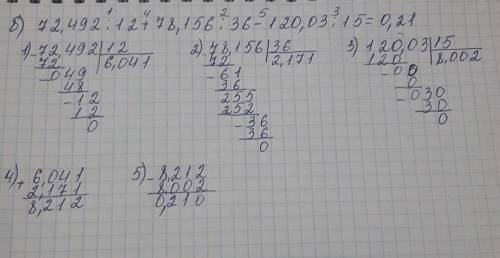 б) 72,492 : 12 + 78,156 : 36 - 120,03 : 15 = 0,21
1) 72,492 | 12
72 | 6,041
- 049
48
- 12
12
0
2) 78,156 | 36
72 | 2,171
- 61
36
255
252
- 36
36
0
3) 120,03 | 15
120 | 8,002
- 00
0
- 030
30
0
4) + 6,041
2,171
8,212
5) - 8,212
8,002
0,210